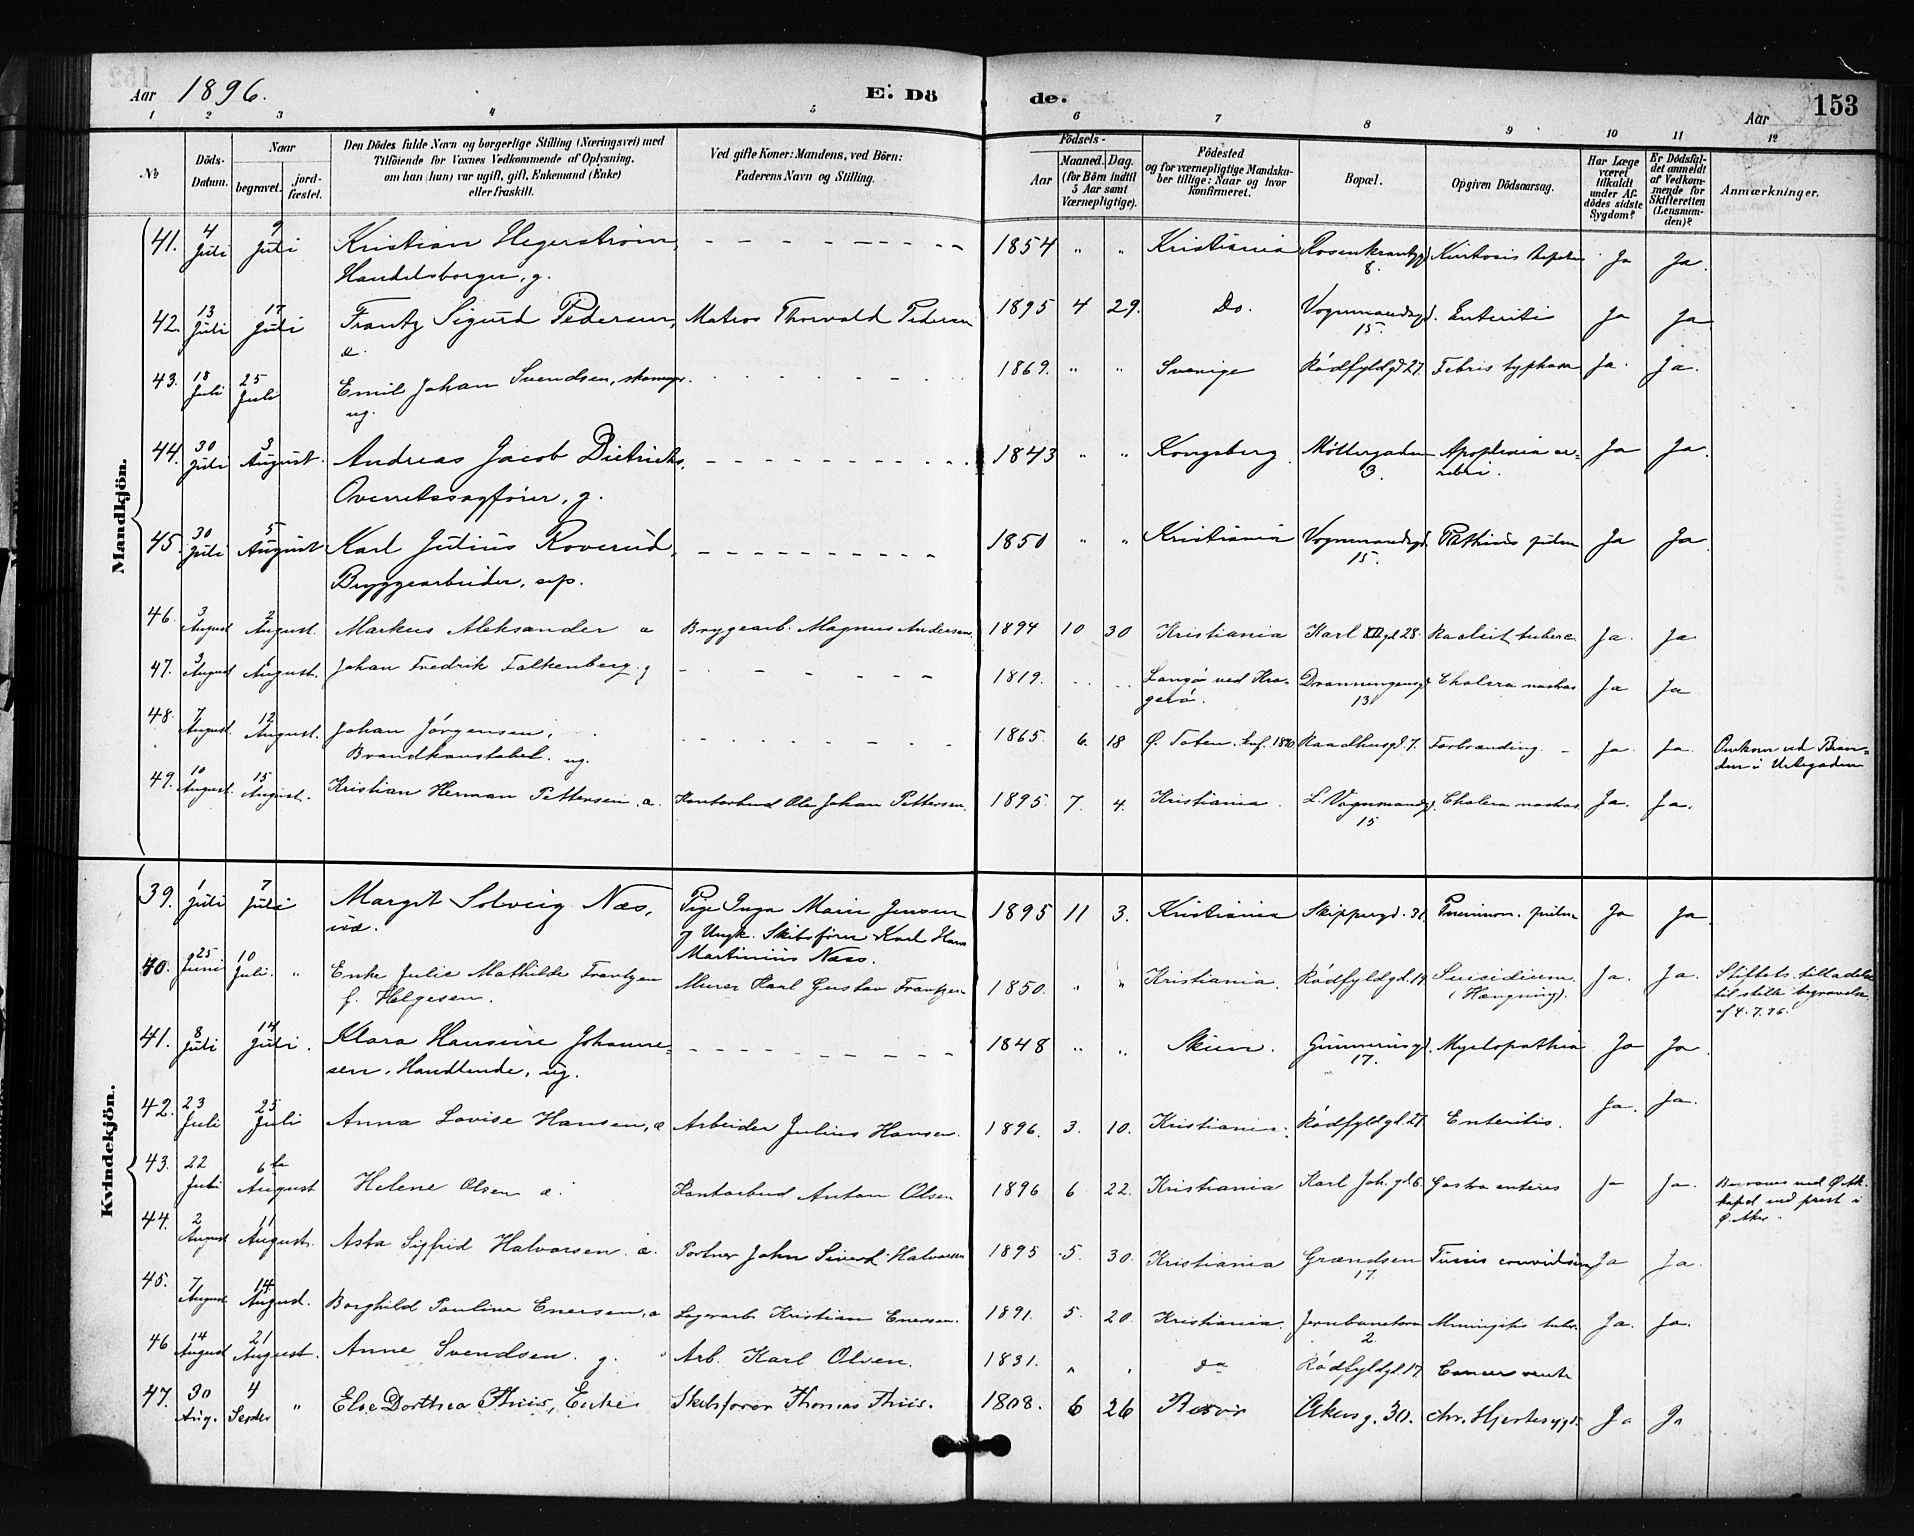 Aar 1896. E. Dö de. Aar 153
1 2 3 4 5 6 7 8 9 10 11 12
№
Döds-Datum.
Naar
begravet. jord-fæstet.
Den Dödes fulde Navn og borgerlige Stilling (Næringsvei) med
Tilföiende for Voxnes Vedkommende af Oplysning,
om han (hun) var ugift, gift, Enkemand (Enke)
eller fraskilt.
Ved gifte Koner: Mandens, ved Börn:
Faderens Navn og Stilling.
Födsels-
Aar Maaned. Dag.
(for Börn indtil
5 Aar samt
Værnepligtige).
Födested
og for værnepligtige Mandska-
ber tillige: Naar og hvor
konfirmeret.
Bopæl.
Opgiven Dödsaarsag.
Har Læge
været
tilkaldt
under Af-
dödes sidste
Sygdom?
Er Dödsfal-
det anmeldt
af Vedkom-
mende for
Skifteretten
(Lensman-
den)?
Anmærkninger.
Mandkjön.
41. 4 Juli 9 Juli Kristian Hegerstrøm, 1854 " " Kristiania Rosenkrantzgd. 8. Ja Ja.
Handelsborger, g.
42. 13 Juli 17 Juli Frantz Sigurd Pedersen, Matros Thorvald Pedersen 1895 4 29. Do. Vognmandsgd. 15. Enteritis Ja Ja
æ.
43. 18 Juli 25 Juli Emil Johan Svendsen, skomager 1869. " " Sverige Rødfyldgd. 27. Febris typhosa Ja. Ja.
ug.
44. 30 Juli 3 August. Andreas Jacob Dietrichs, 1843 " " Kongsberg. Møllergaden 3. Apoplexia cerebri. Ja Ja.
Overretssagfører, g.
45. 30 Juli 5 August Karl Julius Roverud, 1850 " " Kristiania Vognmandsgd. 15. Ja Ja.
Bryggearbeider, sep.
46. 3 August 2 August. Markus Aleksander æ Bryggearb. Magnus Andersen. 1894 10 30 Kristiania Karl XIIgd. 28. Ja. Ja
47. 3 August August. Johan Fredrik Falkenberg. g 1819. Langø ved Kragerø. Dronningensgd. 13. Cholera nostras Ja Ja
48. 7 August 12 August. Johan Jørgensen, 1865. 6. 18 Ø. Toten. Raadhusgd. 7. Forbrænding. Ja. Ja. Omkom ved Branden i Urtegaden
Brandkonstabel. ug.
49. 10 August. 15 August. Kristian Herman Pettersen. æ. Kontorbud Ole Johan Pettersen. 1895. 7. 4. Kristiania. L. Vognmandsgd. 15 Cholera nostras. Ja. Ja.
Kvindekjön.
39. 1 Juli 7 Juli Margit Solveig Næs, Pige Inga Marie Jensen 1895 11 3. Kristiania Skippergd. 31. Ja Ja.
uæ. og Ungk. Skibsfører Karl Hans
Martinius Næss.
40. 25 Juni 10 Juli. " Enke Julie Mathilde Frantzen Murer Karl Gustav Frantzen 1850. " " Kristiania. Rødfyldgd. 19. Suicidium (Hængning). Ja. Ja. Stiftets tilladelse
f. Helgesen. til stille begravelse
af 4.7.96.
41. 8 Juli 14 Juli. Klara Hansine Johanne- 1848 " " Skien. Gunnerusgd. 17. Myelopathia Ja Ja.
sen. Handlende, ug.
42. 23 Juli 25 Juli Anna Lovise Hansen, æ Arbeider Julius Hansen. 1896. 3. 10. Kristiania. Rødfyldgd. 27. Enteritis. Ja. Ja.
43. 22 Juli 6te August Helene Olsen æ. Kontorbud Anton Olsen 1896 6 22. Kristiania Karl Joh. gd. 6. Ja Ja.
kapel ved prest i
Ø. Aker.
44. 2 August 11 August. Asta Sigfrid Halvorsen. æ. Portner John Siverd Halvorsen 1895 5. 30. Kristiania Grændsen 17. Tussis convulsiva Ja Ja.
45. 7 August 14 August. Borghild Pauline Enersen, æ Lagerarb. Kristian Enersen. 1891. 5. 20. Kristiania. Jernbanetorv 2. Meningitis tuber. Ja. Ja.
46 14 August 21 August. Anne Svendsen. g. Arb. Karl Olsen. 1831. " " do Rødfyldgd. 17.
47. 30 Aug. 4 Septbr " Else Dorthea Thiis, Enke Skibsfører Thomas Thiis. 1808. 6 26 Risør Akersg. 30. chr. Hjertesygd. Ja Ja